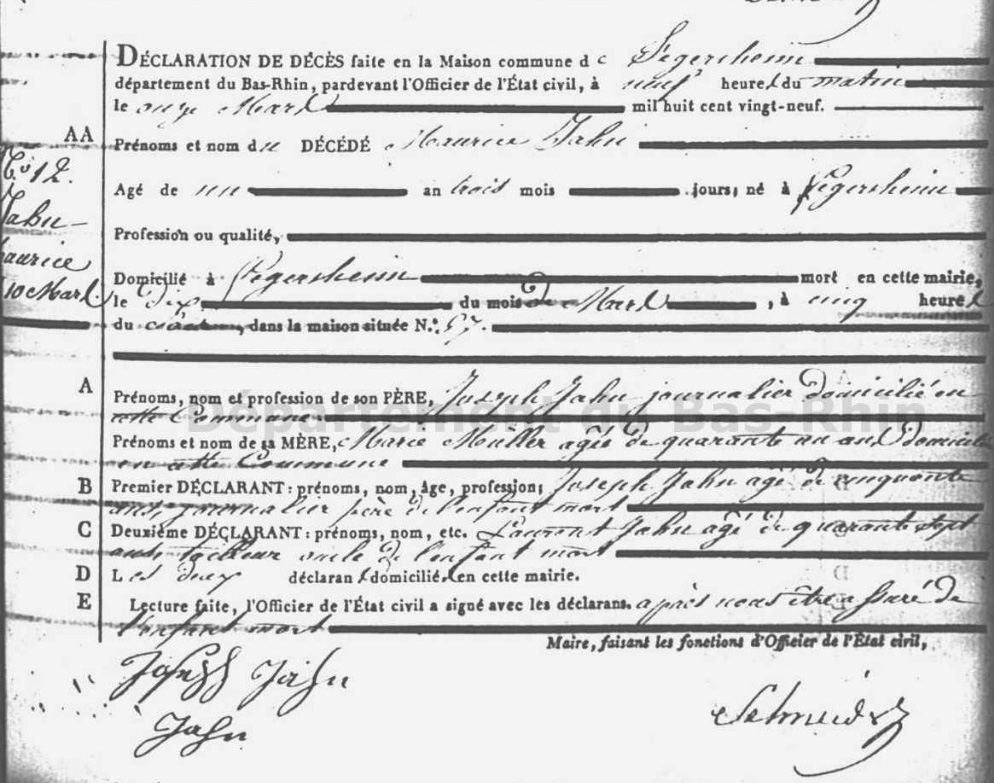 DÉCLARATION DE DÉCÈS faite en la Maison commune de Fegersheim
département du Bas-Rhin, pardevant l'Officier de l'État civil, à neuf heures du matin
le onze Mars mil huit cent vingt-neuf.
AA Prénoms et nom du DÉCÉDÉ Maurice Jahn
N.º 12.
Agé de un an trois mois jours, né à Fegersheim
Jahn
Profession ou qualité,
Maurice
Domicilié à Fegersheim mort en cette mairie,
10 Mars
le dix du mois de Mars, à cinq heures
du soir, dans la maison située N.º 57.
A Prénoms, nom et profession de son PÈRE, Joseph Jahn journalier domicilié en
cette Commune
Département du Bas-Rhin
Prénoms et nom de sa MÈRE, Marie Müller agée de quarante un ans domicil
en cette Commune
B Premier DÉCLARANT : prénoms, nom, âge, profession; Joseph Jahn agé de cinquante
ans, journalier père de l'enfant mort
C Deuxième DÉCLARANT : prénoms, nom, etc. Laurent Jahn agé de quarante sept
ans, oncle de l'enfant mort
D Les deux déclarans domiciliés en cette mairie.
E Lecture faite, l'Officier de l'État civil a signé avec les déclarans. après nous être assuré de
l'enfant mort
Maire, faisant les fonctions d'Officier de l'État civil,
Joseph Jahn
Schneider
Jahn